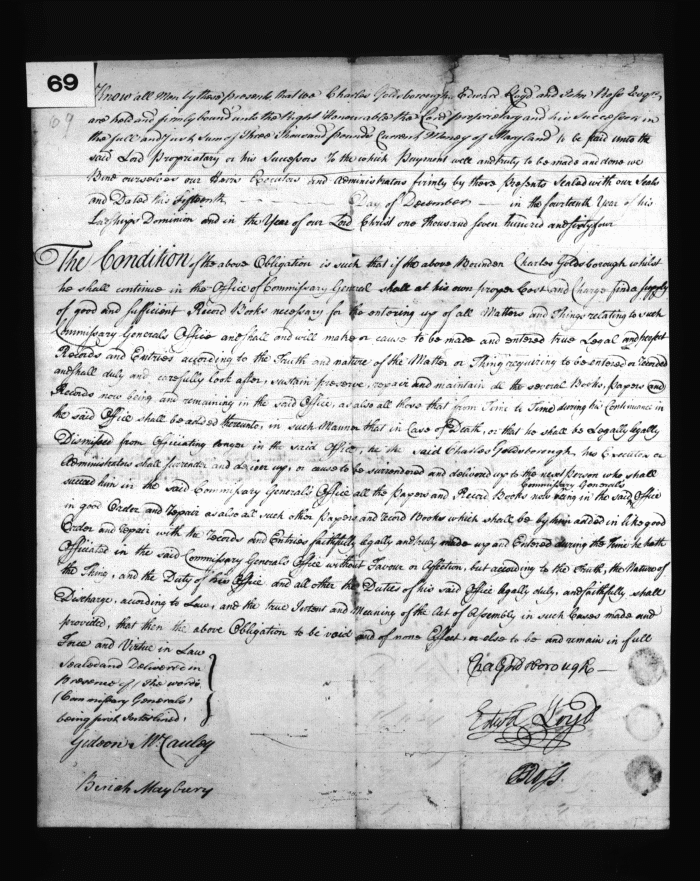 69
69
Know all Men by these presents, that we Charles Goldsborough, Edward Loyd and John Ross Esqrs,
are held and firmly bound unto the Right Honourable the Lord proprietary and his Successors in
the full and just Sum of Three Thousand pounds Current Money of Maryland to be paid unto the
said Lord Proprietary or his Successors To the which Payment well and truly to be made and done we
Bind ourselves our Heirs Executors and Administrators firmly by these Presents Sealed with our Seals
and Dated this Fifteenth Day of December in the fourteenth Year of his
Lordships Dominion and in the Year of our Lord Christ one thousand seven hundred and sixty four
The Condition of the above Obligation is such that if the above Bounden Charles Goldsborough whilst
he shall continue in the Office of Commissary General shall at his own proper Cost and Charge find a supply
of good and sufficient Record Books necessary for the entering up of all Matters and Things relating to such
Commissary Generals Office and shall and will make or cause to be made and entered true Legal and perfect
Records and Entries according to the Truth and nature of the Matter or Thing requiring to be entered or recorded
and shall duly and carefully look after, sustain preserve, repair and maintain all the several Books, Papers and
Records now being and remaining in the said Office, as also all those that from Time to Time during his Continuance in
the said Office shall be added thereunto, in such Manner that in Case of Death, or that he shall be Legally
Dismissed from Officiating longer in the said Office, he the said Charles Goldsborough, his Executors or
Administrators shall surrender and deliver up, or cause to be surrendered and delivered up to the next Person who shall
Commissary Generals
succeed him in the said Commissary Generals Office all the Papers and Record Books now being in the said Office
in good Order and repair as also all such other Papers and Record Books which shall be by him added in like good
Order and repair with the Records and Entries faithfully legally and truly made up and Entered during the Time he hath
Officiated in the said Commissary Generals Office without Favour or Affection, but according to the Truth, the Nature of
the Thing, and the Duty of his Office and all other the Duties of his said Office legally duly, and faithfully shall
Discharge, according to Law, and the true Intent and Meaning of the Act of Assembly in such Cases made and
provided, that then the above Obligation to be void and of none Effect, or else to be and remain in full
Force and Virtue in Law
Sealed and Delivered in
Presence of (the words
(Commissary Generals)
being first Interlined)
Chas Goldsborough
Edwd Loyd
Gideon McCauley
Ross.
Beriah Maybury